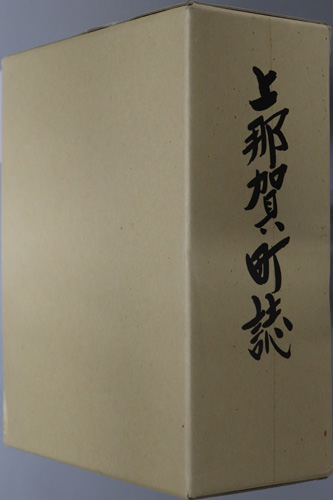 上那賀町誌